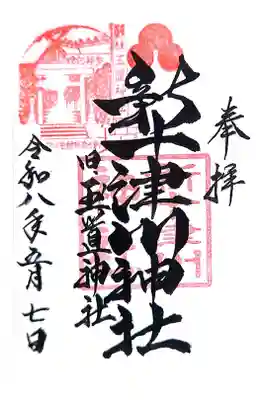 奉拝
新十津川神社
旧玉置神社
令和八年五月七日